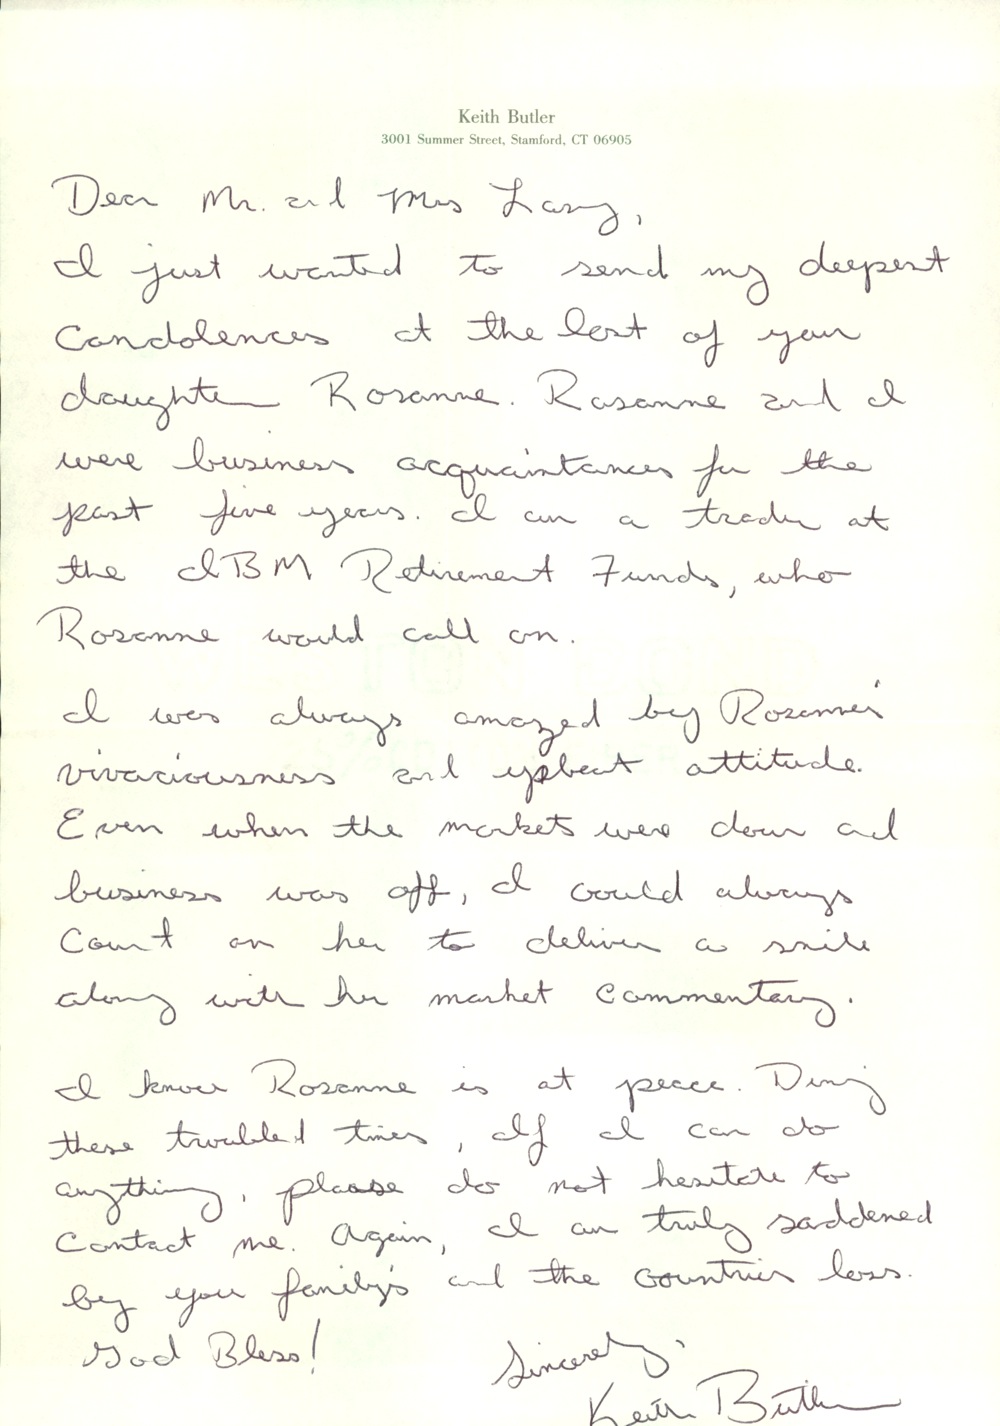 Keith Butler
3001 Summer Street, Stamford, CT 06905
Dear Mr. and Mrs Lang,
I just wanted to send my deepest
condolences at the lost of your
daughter Rosanne. Rosanne and I
were business acquaintances for the
past five years. I am a trader at
the IBM Retirement Funds, who
Rosanne would call on.
I was always amazed by Rosanne's
vivaciousness and upbeat attitude.
Even when the markets were down and
business was off, I could always
count on her to deliver a smile
along with her market commentary.
I know Rosanne is at peace. During
these troubled times, If I can do
anything, please do not hesitate to
contact me. Again, I am truly saddened
by your family's and the countries loss.
God Bless!
Sincerely,
Keith Butler